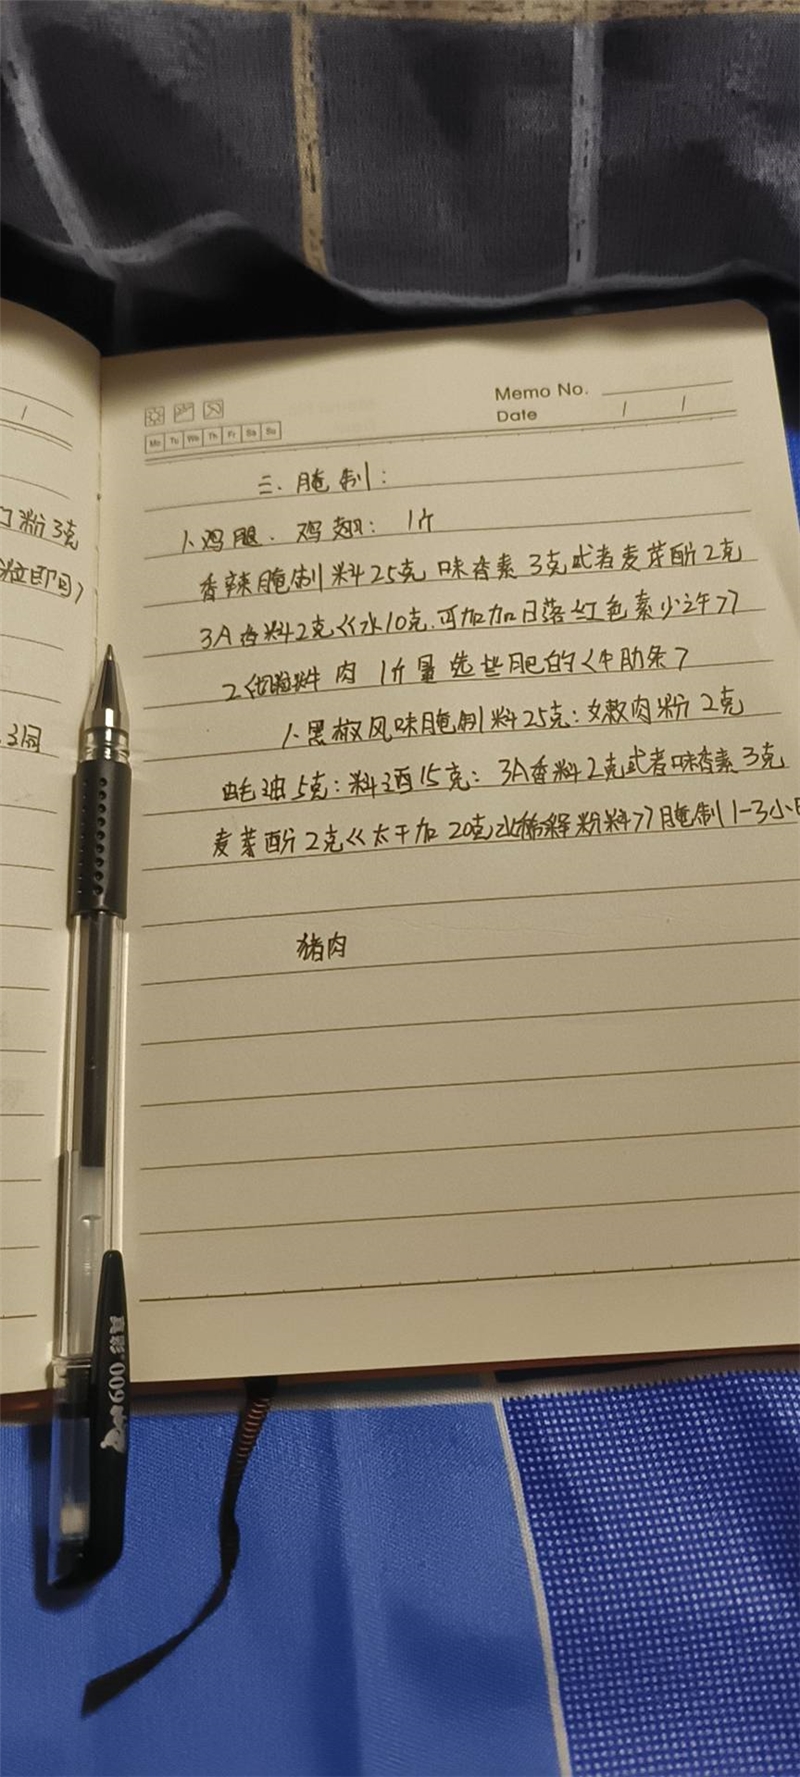 Memo No.
Date / /
Mo Tu We Th Fr Sa Su
三、腌制：
1、鸡腿、鸡翅： 1斤
香辣腌制料25克 味香素 3克或者麦芽酚2克
3A香料2克《水10克.可加加日落红色素少许》
2 牛肉 1斤量 选些肥的〈牛肋条〉
1、黑椒风味腌制料25克：嫩肉粉 2克
蚝油 5克：料酒15克： 3A香料2克或者味香素 3克
麦芽酚 2克《太干加 20克水稀释粉料》腌制 1-3小
猪肉
/
粉3克
3同
真彩 009